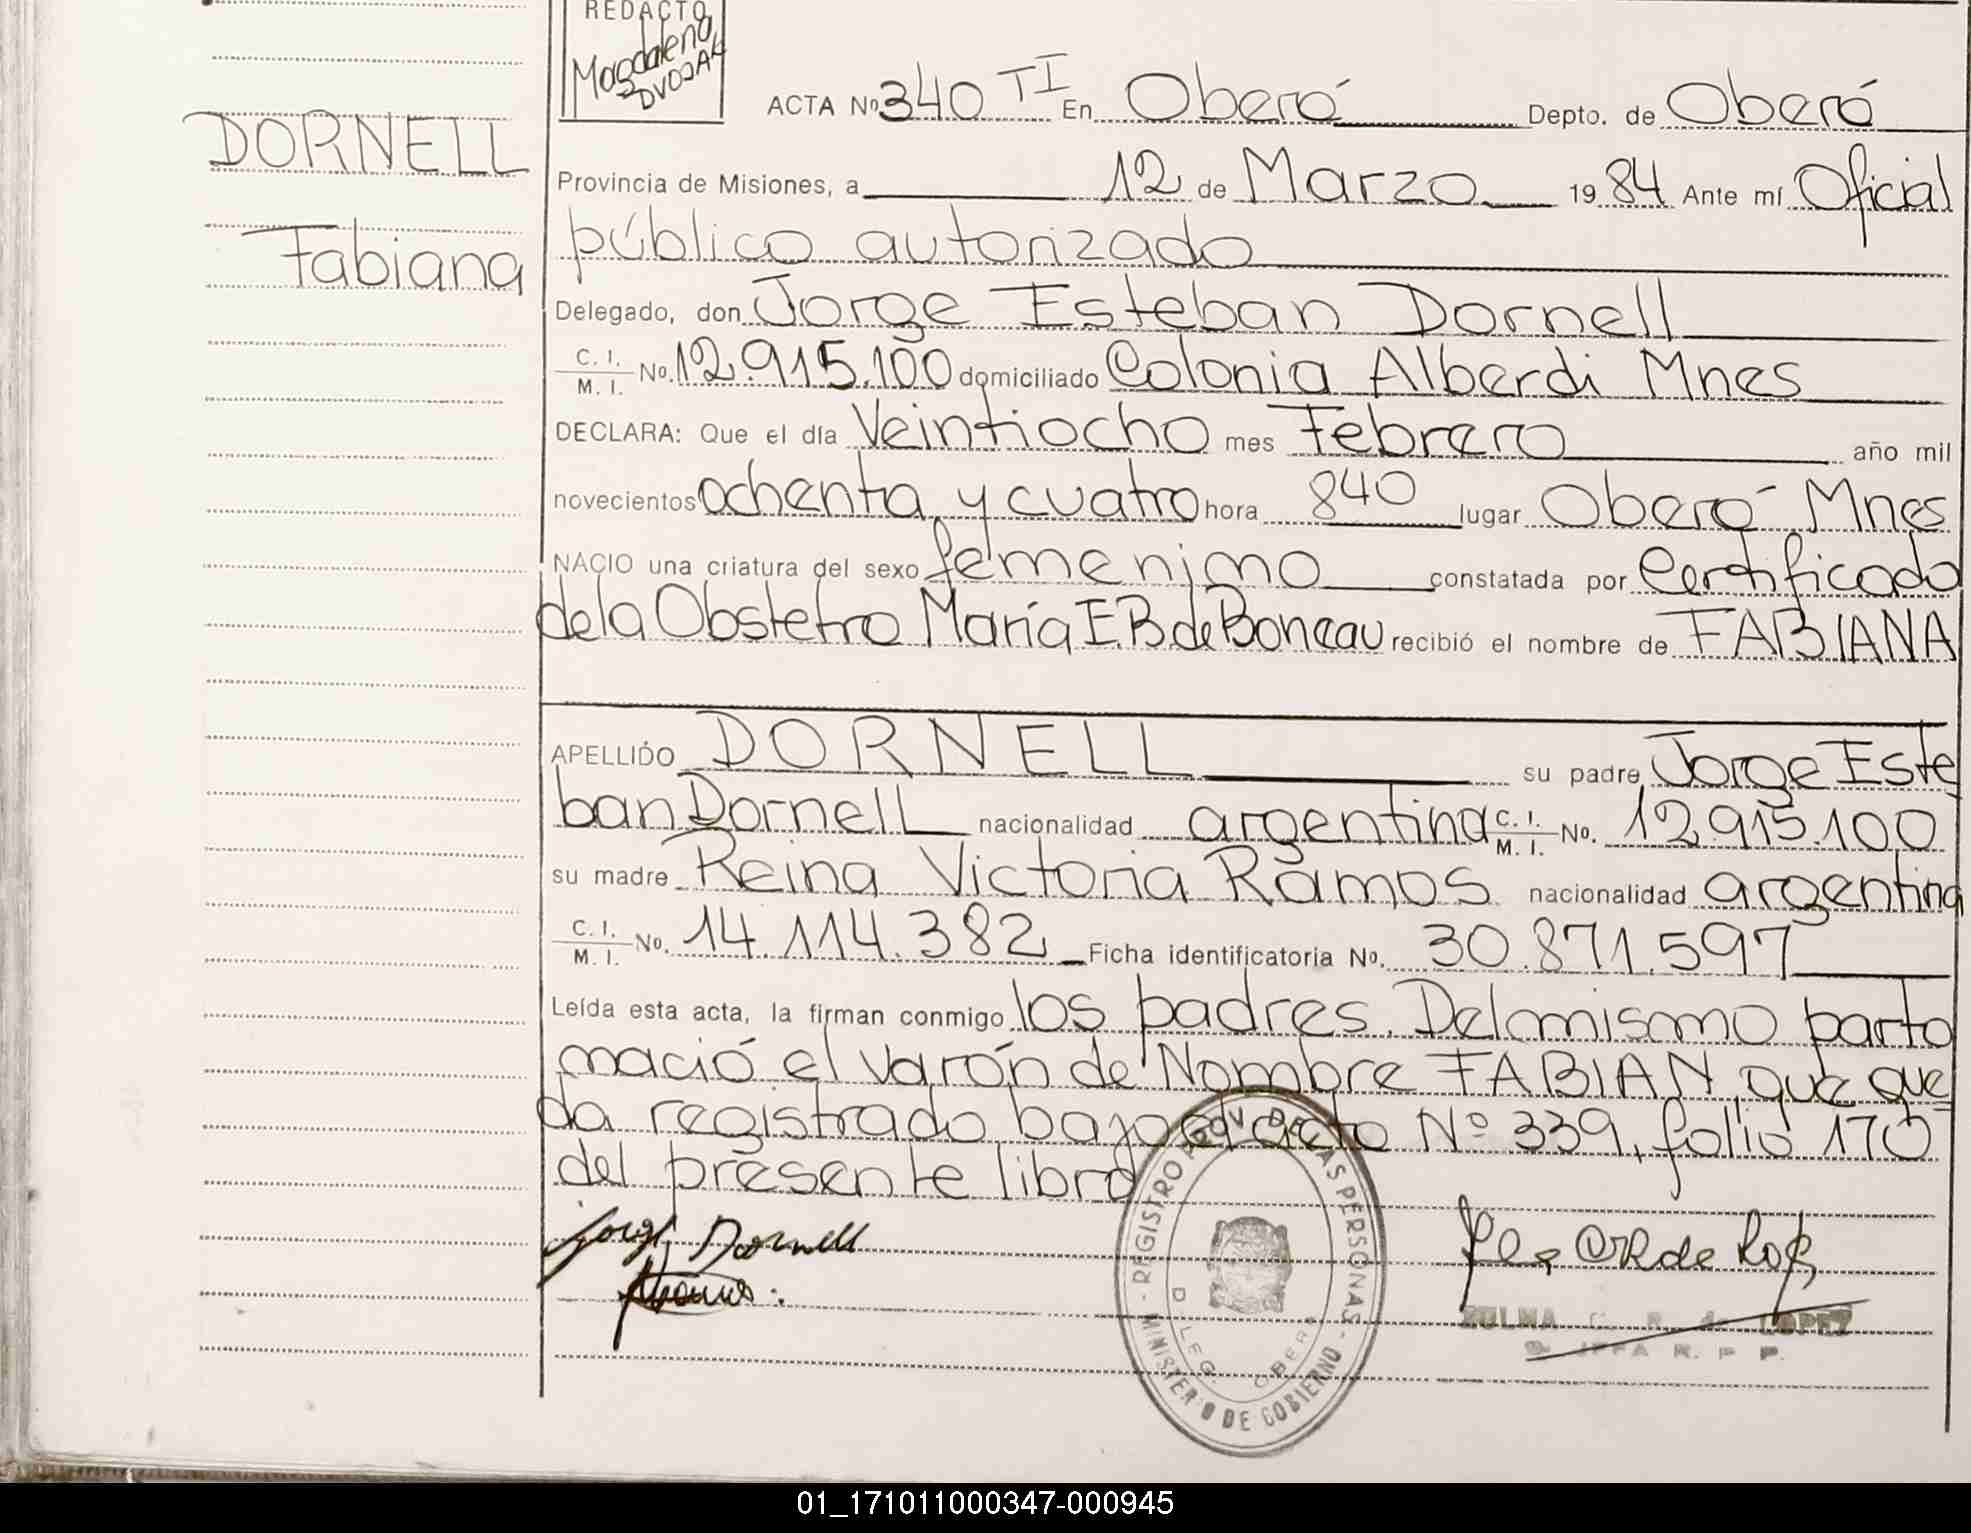 REDACTO
Magdalena
DVOJAK
DORNELL
Fabiana
ACTA Nº 340 TI En Oberá Depto. de Oberá
Provincia de Misiones, a 12 de Marzo 1984 Ante mí Oficial
público autorizado
Delegado, don Jorge Esteban Dornell
C. I. / M. I. Nº. 12.915.100 domiciliado Colonia Alberdi Mnes
DECLARA: Que el día Veintiocho mes Febrero año mil
novecientos ochenta y cuatro hora 840 lugar Oberá Mnes
NACIO una criatura del sexo femenino constatada por Certificado
de la Obstetra María E.B. de Boneau recibió el nombre de FABIANA
APELLIDO DORNELL su padre Jorge Este
ban Dornell nacionalidad argentina C. I. / M. I. Nº. 12.915.100
su madre Reina Victoria Ramos nacionalidad argentina
C. I. / M. I. Nº. 14.114.382 Ficha identificatoria Nº. 30.871.597
Leída esta acta, la firman conmigo los padres. Del mismo parto
nació el varón de Nombre FABIAN que que=
da registrado bajo el acta Nº 339, folio 170
del presente libro
Jorge Dornell
REGISTRO PROV. DE LAS PERSONAS - MINISTERIO DE GOBIERNO -
DELEG. OBERA
ZULMA C. R. de LOPEZ
JEFA R. P. P.
01_171011000347-000945